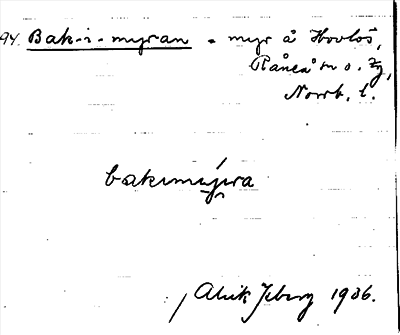 94. Bak-i-myran = myr å Hovlös,
Råneå sn o. tg,
Norrb. l.
bakimýra
Alvik 1936.